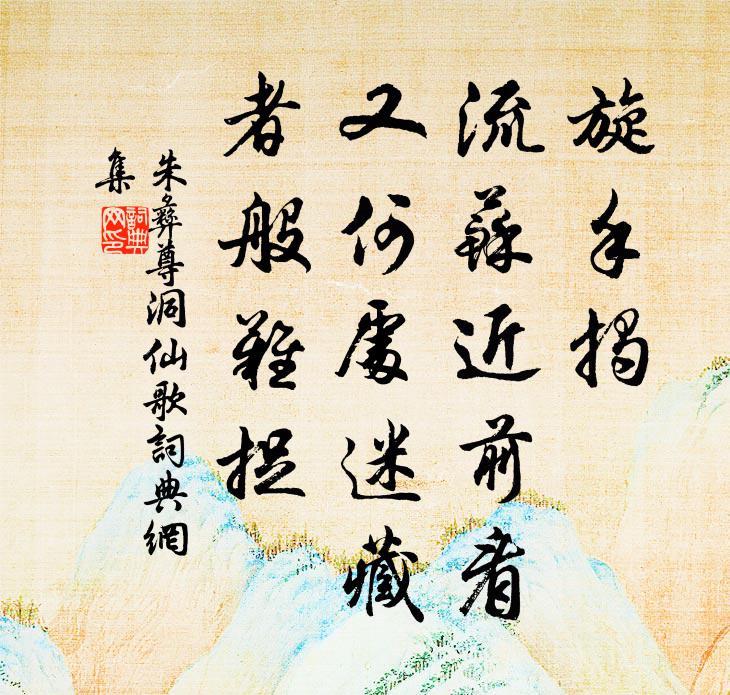 旋手揭
流蘇近前看
又何處迷藏
者般難捉
朱彝尊洞仙歌詞典網
集
詞典網印